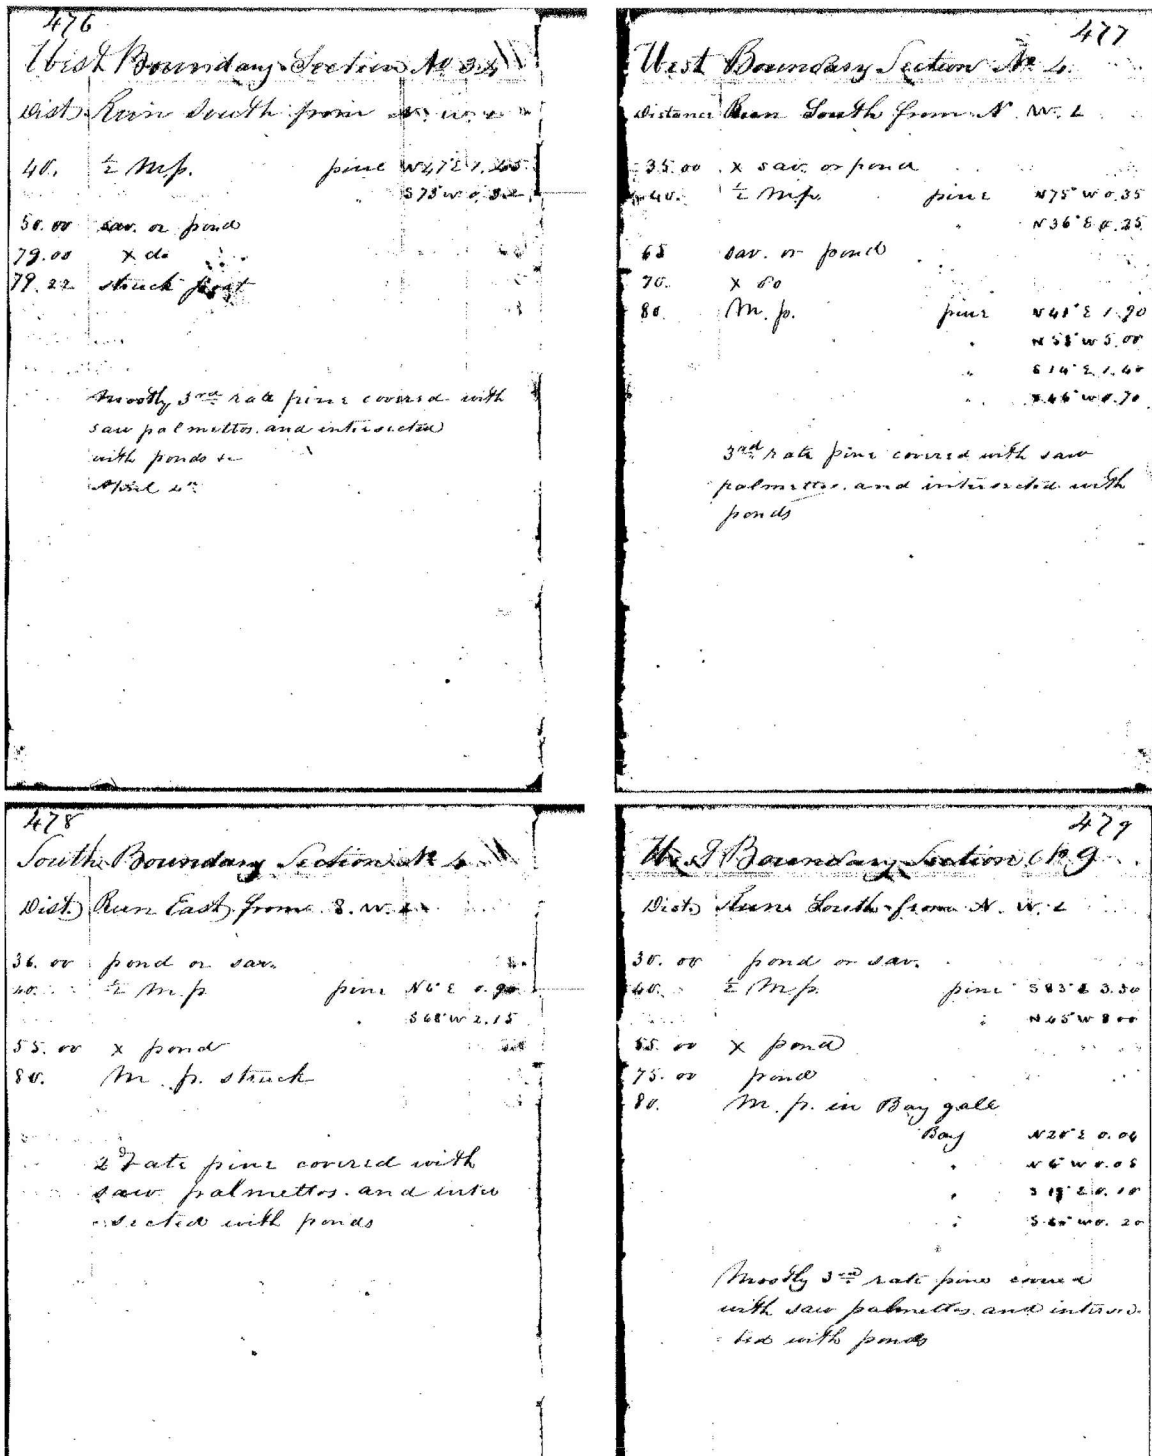 476
West Boundary Section No
Dist Run South from N. W.
40. ½ M.p. pine N47°E 1.
S73°W 0.
50.00 sav. or pond
79.00 x do
79.22 struck post
Mostly 3rd rate pine covered with
saw palmettos and intersected
with ponds &c
April
477
West Boundary Section No 4
Distance Run South from N. W. L
35.00 x sav. or pond
40. ½ M.p. pine N75°W 0.35
" N36°E 0.25
65 sav. or pond
70. x do
80. M. p. pine N41°E 1.90
" N58°W 5.00
" S14°E 1.40
" W 0.70
3rd rate pine covered with saw
palmettos and intersected with
ponds
478
South Boundary Section No 4
Dist Run East from S. W.
36.00 pond or sav.
40. ½ M.p pine N6°E 0.90
" S68°W 2.15
55.00 x pond
80. M. p. struck
2d rate pine covered with
saw palmettos and inter
sected with ponds
479
West Boundary Section No 9
Dist Run South from N. W. L
30.00 pond or sav.
40. ½ M.p. pine S83°E 3.30
" N45°W 8.00
55.00 x pond
75.00 pond
80. M. p. in Bay gall
Bay N20°E 0.04
" N6°W 0.05
" S19°E 0.10
" W 0.20
Mostly 3rd rate pine covered
with saw palmettos and intersec
ted with ponds